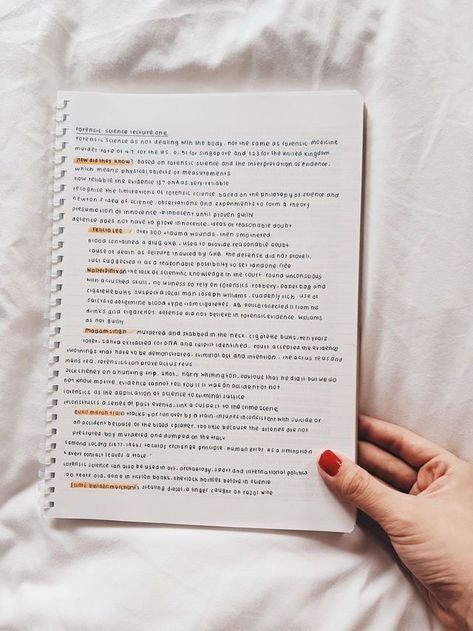 forensic science lecture one
forensic science as not dealing with the body, not the same as forensic medicine
murder rate of 4.7 for the US, 0. 31 for singapore and 1.23 for the united kingdom
how did they know? based on forensic science and the interpretation of evidence,
which means physical objects or measurements
how reliable the evidence is? DNA as very reliable
recognise the limitations of forensic science, based on the philosophy of science and
newton's idea of science, observations and experiments to form a theory
presumption of innocence → innocent until proven guilty
defence does not have to prove innocence, ideas of reasonable doubt
felicia lee over 300 trauma wounds, then smothered
blood contained a drug GHB, used to provide reasonable doubt
cause of death as seizure induced by GHB. the defence did not prove it,
just suggested it as a reasonable possibility to set someone free
the lack of scientific knowledge in the court, found unconscious
with a crushed skull, no witness so rely on forensics. robbery, paper bag and
cigarette butts, suspect a local man joseph williams, suddenly rich. use of
saliva to determine blood type from cigarettes. AB, police connected it from his
drinks and cigarettes. defense did not believe in forensic evidence, williams
as not guilty
murdered and stabbed in the neck, cigarette butts, ten years
later, saliva extracted for DNA and culprit identified. court accepted the evidence
two things that have to be demonstrated, criminal act and intention. the actus reus and
mens rea, forensics can prove actus reus
dick cheney on a hunting trip, shot harry whittington, obvious that he did it but we do
not know motive, evidence cannot tell you if it was an accident or not
forensics as the application of science to criminal justice
reconstructs a series of past events, link a suspect to the crime scene
train tracks but run over by a train. injuries inconsistent with suicide or
an accident because of the blood splatter, too little because the arteries are not
pressured. boy murdered and dumped on the track
edmond locard (1877-1966), locard exchange principle, human error as a limitation
"every contact leaves a trace"
forensic science can also be used in art, archaeology, sport and international politics
100 years old, done in fiction books, sherlock holmes before in science
stealing diesel, a finger caught on razor wire